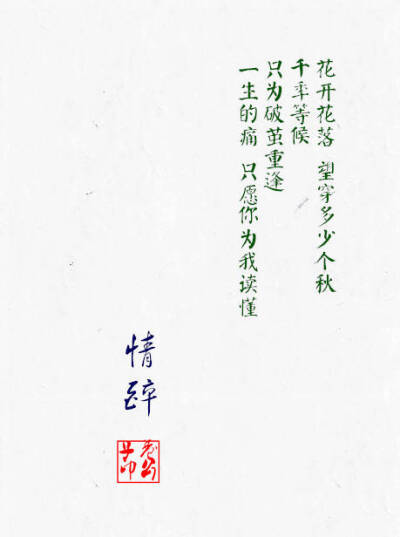 花开花落 望穿多少个秋
千年等候
只为破茧重逢
一生的痛 只愿你为我读懂
情醉